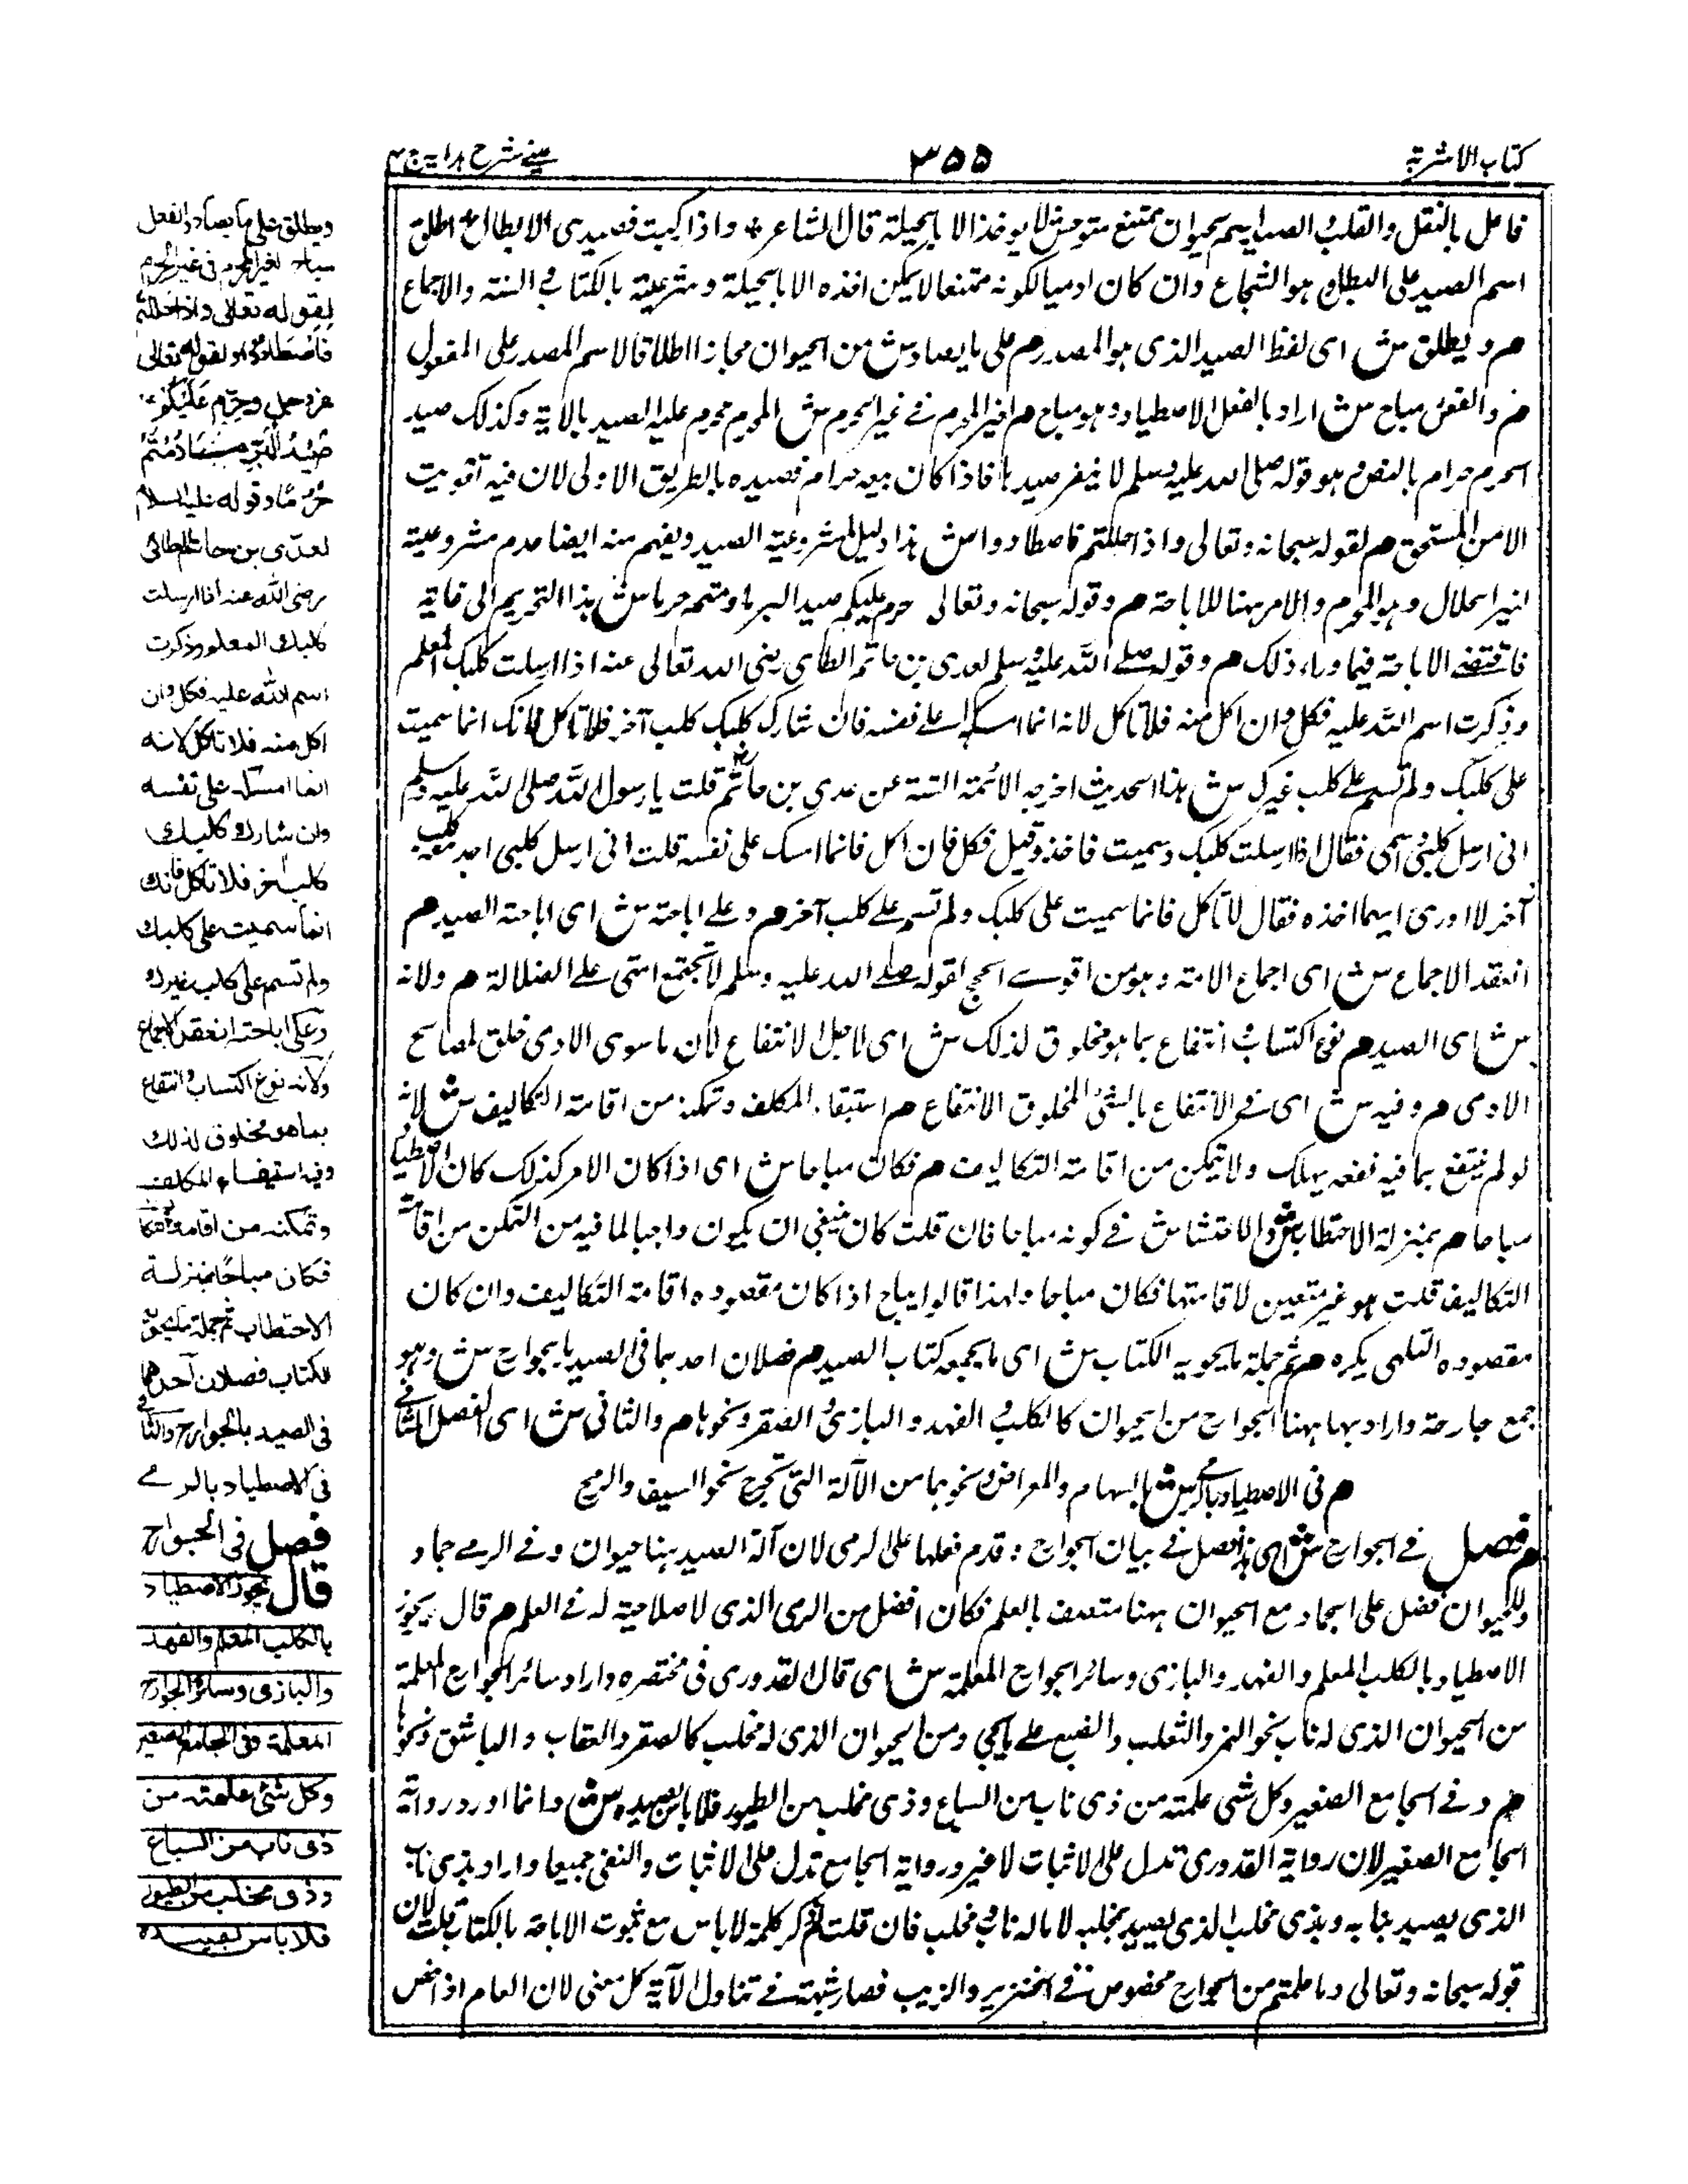 كتاب الاشربة
٣٥٥
عينے شرح ہدایہ ج ۴
فاعل بالنقل والقلب الصيد اسم لحيوان ممتنع متوحش لا يوخذ الا بحيلة قال الشاعر واذا ركبت فصيدى الابطال اطلق
اسم الصيد على البطل و هو الشجاع وان كان ادميا لكونه ممتنعا لا يمكن اخذه الا بحيلة ومشرعيته بالكتاب و السنة والاجماع
م و يطلق ش اى لفظ الصيد الذى هو المصدر م على ما يصاد ش من الحيوان مجازا اطلاقا لاسم المصدر على المفعول
م والفعل مباح ش اراد بالفعل الاصطياد وهو مباح م لغير المحرم فے غير الحرم ش المحرم محرم عليه الصيد بالآية وكذلك صيد
الحرم حرام بالنص و هو قوله صلى الله عليه وسلم لا ينفر صيدها فاذا كان حرام فصيده بالطريق الاولى لان فيه تفويت
الامن المستحق م لقوله سبحانه وتعالى واذا حللتم فاصطادوا ش هذا دليل لمشروعية الصيد ويفهم منه ايضا عدم مشروعية
لغير الحلال وهو المحرم والامر هنا للاباحة م وقوله سبحانه وتعالى حرم عليكم صيد البر ما دمتم حرما ش هذا التحريم الى غاية
فاقتضے الاباحة فيما وراء ذلك م وقوله صلے الله عليه وسلم لعدى بن حاتم الطائى رضى الله تعالى عنه اذا ارسلت كلبك المعلم
وذكرت اسم الله عليه فكل وان اكل منه فلا تاكل لانه انما امسك على نفسه فان شارك كلبك كلب آخر فلا تاكل فانك انما سميت
على كلبك ولم تسم على كلب غيرك ش هذا الحديث اخرجه الائمة الستة عن عدى بن حاتم قلت يا رسول الله صلى الله عليه وسلم
انى ارسل كلبى و اسمى فقال اذا ارسلت كلبك وسميت فاخذ وقتل فكل فان اكل فانما امسك على نفسه قلت انى ارسل كلبى اجد معه كلب
آخر لا ادرى ايهما اخذه فقال لا تاكل فانما سميت على كلبك ولم تسم علے كلب آخر م وعلے اباحته ش اى اباحة الصيد م
انعقد الاجماع ش اى اجماع الامة وهو من اقوے الحجج لقوله صلے الله عليه وسلم لا تجتمع امتى علے الضلالة م ولانه
ش اى الصيد م نوع اكتساب و انتفاع بما هو مخلوق لذلك ش اى لاجل الانتفاع لان ما سوى الادمى خلق لمصالح
الادمى م وفيه ش اى فى الانتفاع بالشئ المخلوق الانتفاع م استبقاء المكلف وتمكينه من اقامة التكاليف ش لانه
لو لم ينتفع بما فيه نفعه يهلك ولا يتمكن من اقامة التكاليف م فكان مباحا ش اى اذا كان الامر كذلك كان الاصطياد
مباحا م بمنزلة الاحتطاب ش والاحتشاش فے كونه مباحا فان قلت كان ينبغى ان يكون واجبا لما فيه من التمكن من اقامة
التكاليف قلت هو غير متعين لاقامتها فكان مباحا ولهذا قالوا يباح اذا كان مقصوده اقامة التكاليف وان كان
مقصوده التلهى يكره م ثم جملة ما يحويه الكتاب ش اى ما يجمعه كتاب الصيد م فصلان احدهما فى الصيد بالجوارح ش وهو
جمع جارحة واراد بها ههنا الجوارح من الحيوان كالكلب و الفهد والبازى و الصقر ونحوها م والثانى ش اى الفصل الثانى
م فى الاصطياد بالرمى ش بالسهام والمعراض ونحوهما من الآلة التى تجرح نحو السيف والرمح
م فصل فے الجوارح ش اى هذا فصل فے بيان الجوارح قدم فعلها على الرمى لان آلة الصيد هنا حيوان وفے الرمے جماد
وللحيوان فضل على الجماد مع الحيوان ههنا متصف بالعلم فكان افضل من الرمى الذى لا صلاحية له فے العلم م قال يجوز
الاصطياد بالكلب المعلم والفهد والبازى وسائر الجوارح المعلمة ش اى قال القدورى فى مختصره واراد سائر الجوارح المعلمة
من الحيوان الذى له ناب نحو النمر والثعلب والضبع علے ما يجى ومن الحيوان الذى له مخلب كالصقر والعقاب والباشق ونحوها
م وفے الجامع الصغير وكل شى علمته من ذى ناب من السباع وذى مخلب من الطيور فلا باس بصيده ش وانما اورد رواية
الجامع الصغير لان رواية القدورى تدل على الاثبات لا غير ورواية الجامع تدل على الاثبات والنفى جميعا واراد بذى ناب
الذى يصيد بنابه وبذى مخلب الذى يصيد بمخلبه لا ما له ناب و مخلب فان قلت لم ذكر كلمة لا باس مع ثبوت الاباحة بالكتاب قلت لان
قوله سبحانه وتعالى وما علمتم من الجوارح مخصوص فے الخنزير والدب فصار شبهة فے تناول الآية كل معنى لان العام اذا خص
ويطلق على ما يصاد والفعل
مباح لغير المحرم فى غير الحرم
لقوله تعالى واذا حللتم
فاصطادوا ولقوله تعالى
عز وجل وحرم عليكم
صيد البر ما دمتم
حرما وقوله عليه السلام
لعدى بن حاتم الطائى
رضى الله عنه اذا ارسلت
كلبك المعلم وذكرت
اسم الله عليه فكل وان
اكل منه فلا تاكل لانه
انما امسك على نفسه
وان شارك كلبك
كلب اخر فلا تاكل فانك
انما سميت على كلبك
ولم تسم على كلب غيرك
وعلى اباحته انعقد الاجماع
ولانه نوع اكتساب وانتفاع
بما هو مخلوق لذلك
وفيه استبقاء المكلف
وتمكينه من اقامة التكاليف
فكان مباحا بمنزلة
الاحتطاب ثم جملة ما يحويه
الكتاب فصلان احدهما
فى الصيد بالجوارح والثانى
فى الاصطياد بالرمے
فصل فى الجوارح
قال يجوز الاصطياد
بالكلب المعلم والفهد
والبازى وسائر الجوارح
المعلمة وفى الجامع الصغير
وكل شئ علمته من
ذى ناب من السباع
وذى مخلب من الطيور
فلا باس بصيده